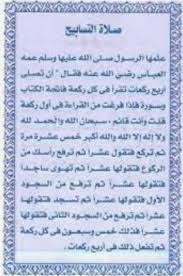 صلاة التسابيح
علمها الرسول صلى الله عليها وسلم عمه
العباس رضي الله عنه فقال " أن تصلى
أربع ركعات تقرأ فى كل ركعة فاتحة الكتاب
وسورة فإذا فرغت من القراءة فى أول ركعة
قلت وأنت قائم ، سبحان الله والحمد لله
ولا إله إلا الله والله أكبر خمس عشرة مرة
ثم تركع فتقول عشراً ثم ترفع رأسك من
الركوع فتقولها عشراً ثم تهوى ساجدا
فتقولها عشراً ثم ترفع من السجود
الأول فتقولها عشراً ثم تسجد فتقولها
عشراً ثم ترفع من السجود الثانى فتقولها
عشراً فذلك خمس وسبعون فى كل ركعة
ثم تفعل ذلك فى أربع ركعات.